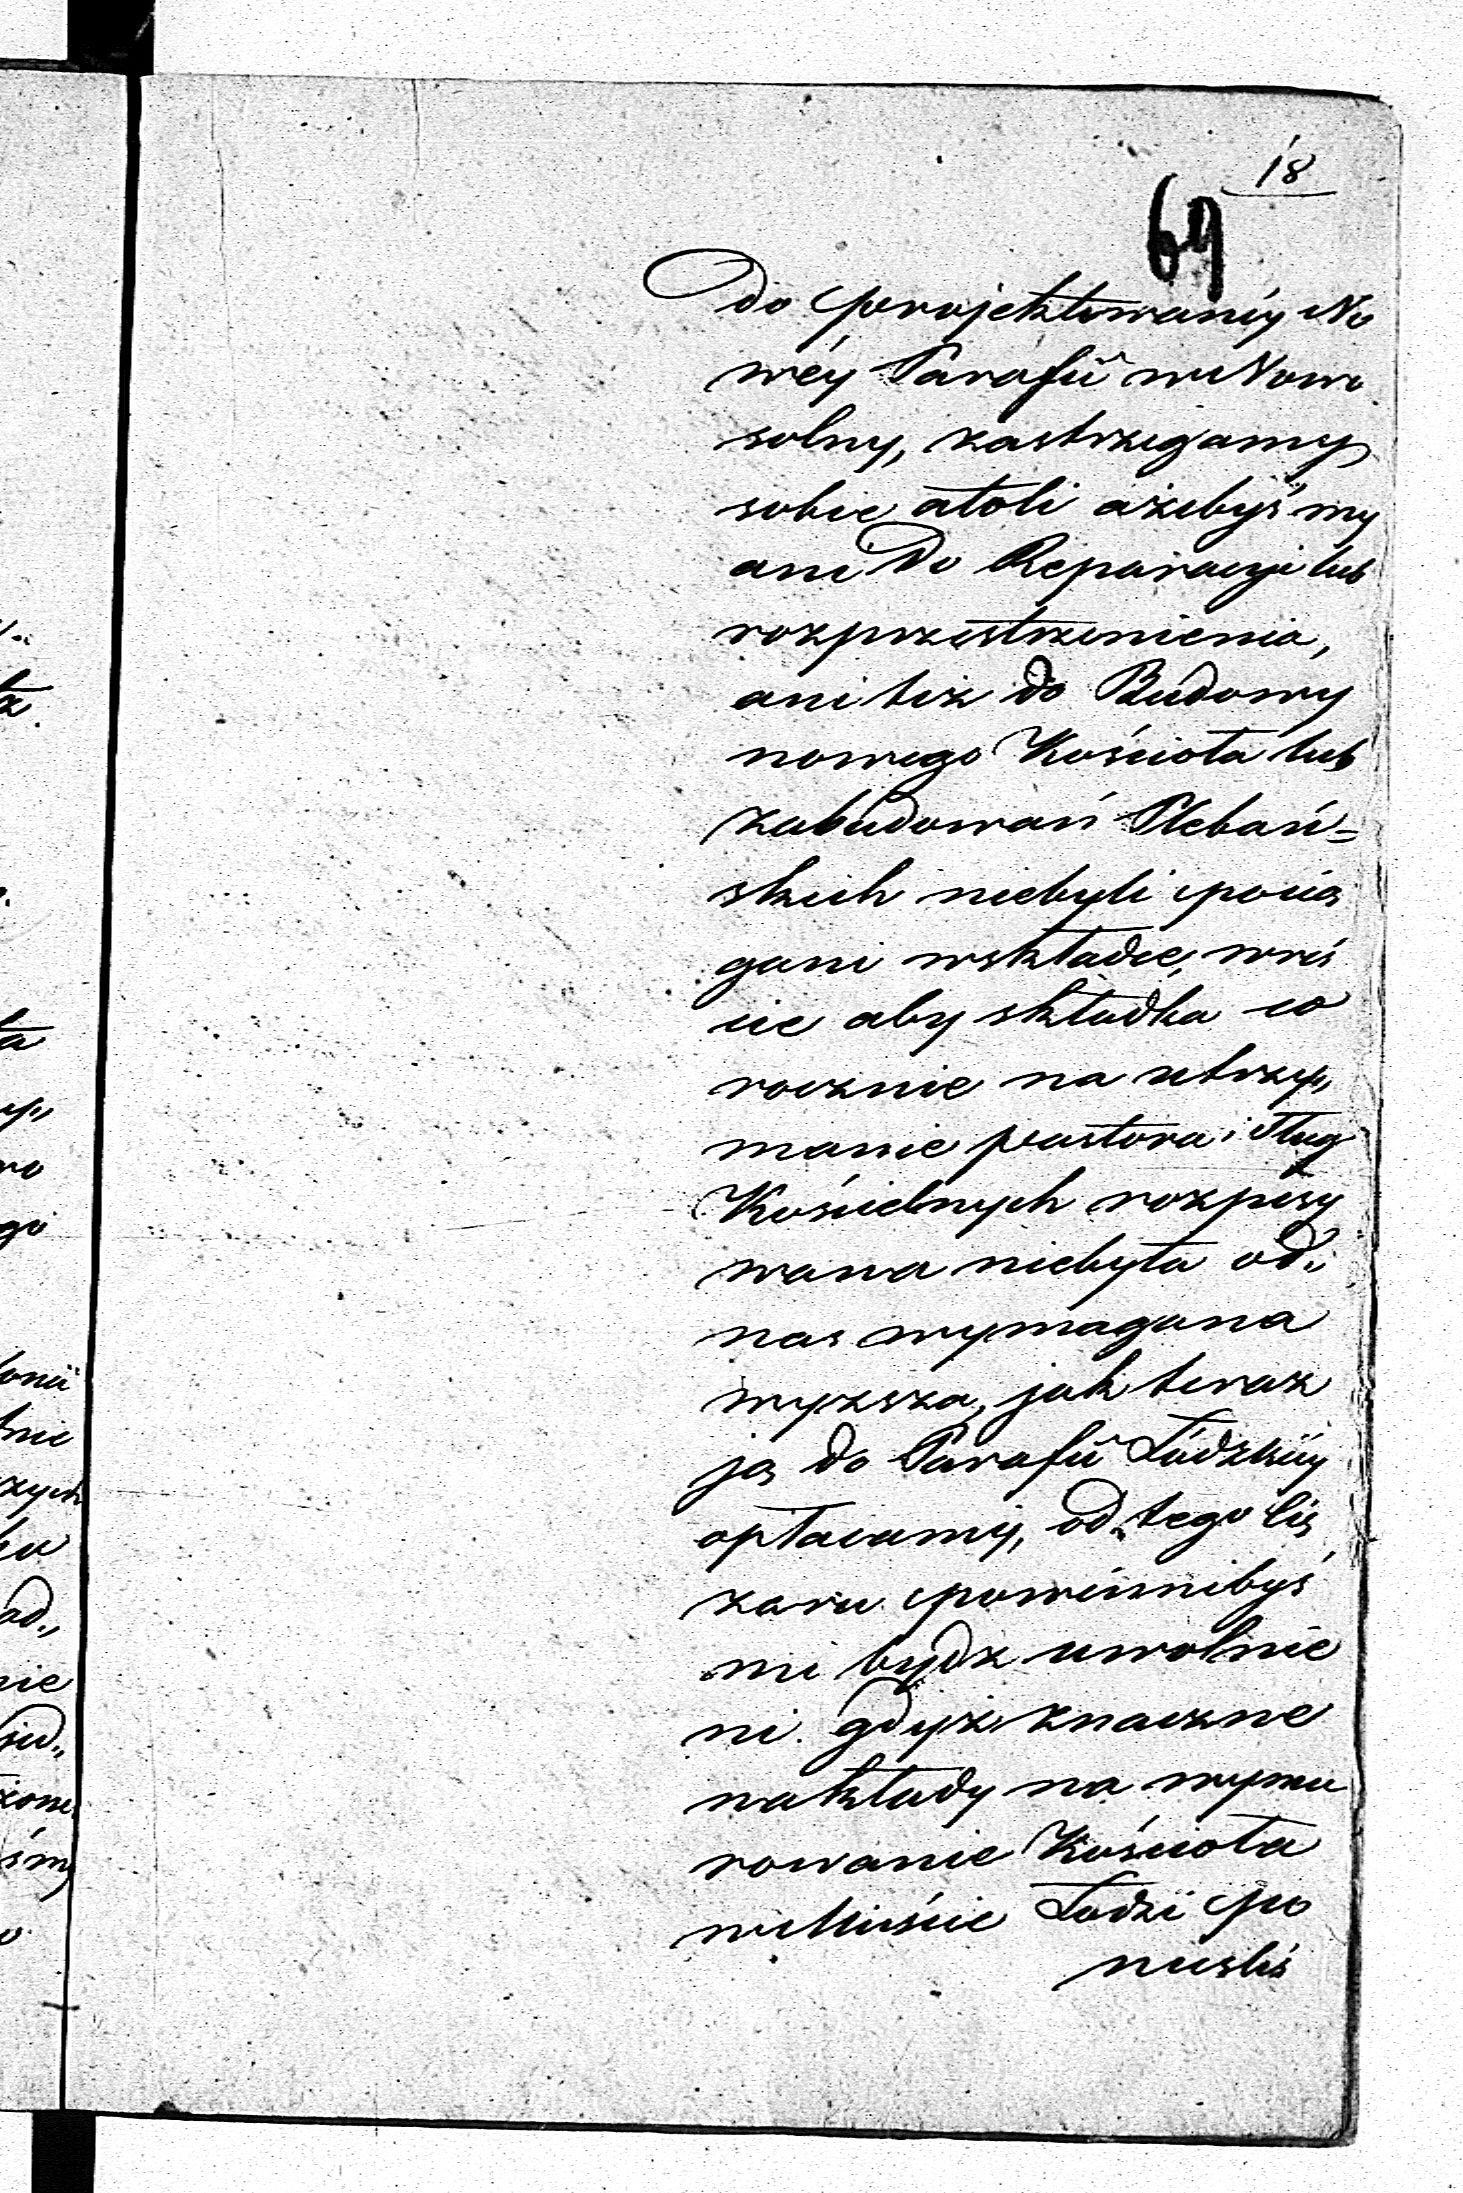 18
69
do projektowanéy No
wéy Parafii w Nowo
solny, zastrzegamy
sobie atoli ażebyśmy
ani do Reparacyi lub
rozprzestrzenienia,
ani też do Budowy
nowego Kościoła lub
zabudowań Plebań=
skich niebyli pocią
gani wskładce, wreś
cie aby składka co
rocznie na utrzy„
manie pastora i sług
Kościelnych rozpisy
wana niebyła od„
nas wymagana
wyższa, jak teraz
ją do Parafii Łódzkiéy
opłacamy, od tego cię
żaru powinnibyś
mi bydz uwolnie
ni. gdyż znaczne
nakłady na wymu
rowanie Kościoła
w Mieście Łodzi po
nieśliś